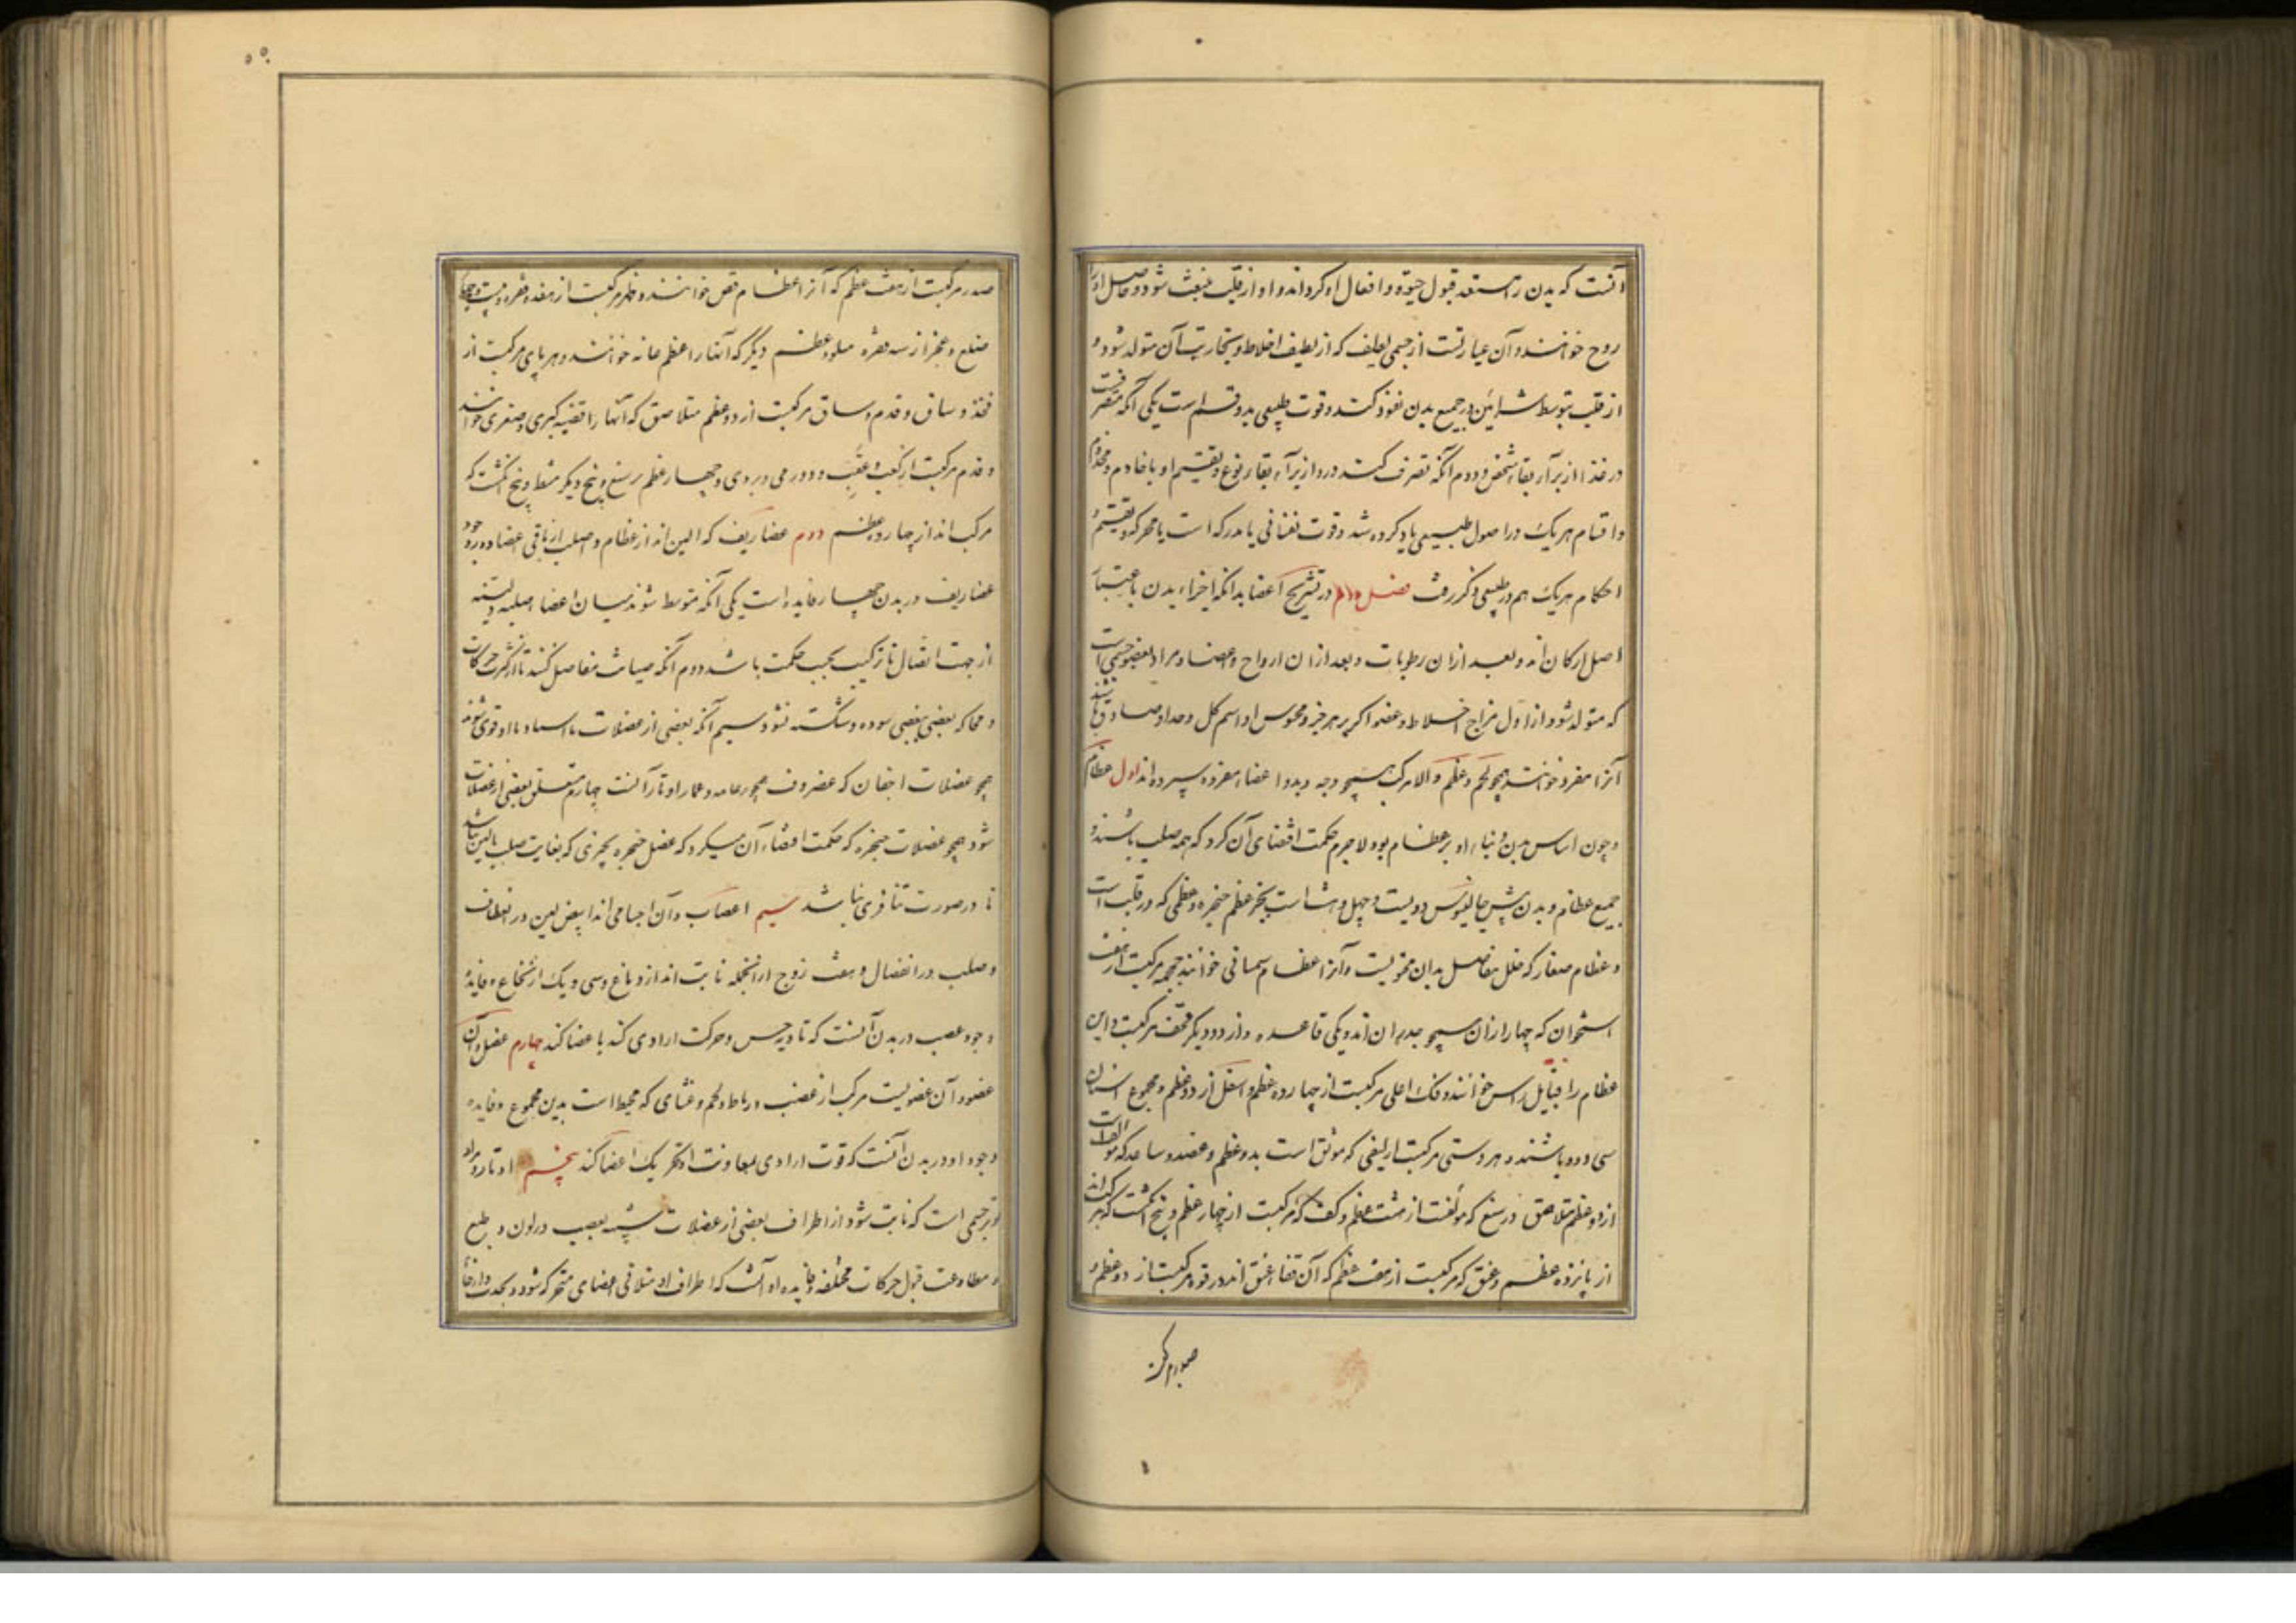 آنست که بدن را مستعد قبول حیوة و افعال او گرداند و او از قلب منبعث شود و حاصل او را
روح خوانند و آن عبارتست از جسمی لطیف که از لطیف اخلاط و بخاریت آن متولد شود و
از قلب بتوسط شرایین در جمیع بدن نفوذ کند و قوت طبیعی بدو قسم است یکی آنکه متصرفست
در غذا از برای بقاء شخص و دوم آنکه تصرف کند درو از برای بقاء نوع و تقسیم او با خادم و مخدوم
و اقسام هریک در اصول طبیعی یاد کرده شد و قوت نفسانی یا مدرکه است یا محرکه و تقسیم و
احکام هریک هم در طبیعی ذکر رفت فصل دوم در تشریح اعضا بدانکه اجزاء بدن باعتبار
اصل ارکان اند و بعد ازان رطوبات و بعد ازان ارواح و اعضا و مراد بعضو جسمی است
که متولد شود از اول مزاج اخلاط و عضو اگر بر هر جزو محسوس او اسم کل و حد او صادق باشد
آنرا مفرد خوانند همچو لحم و عظم و الا مرکب همچو وجه و ید و اعضاء مفرده سیزده اند اول عظام
و چون اساس بدن و بناء او بر عظام بود لاجرم حکمت اقتضای آن کرد که همه صلب باشند و
جمیع عظام در بدن پیش جالینوس دویست و چهل و هشت است بجز عظم حنجره و عظمی که در قلب است
و عظام صغار که خلل مفاصل بدان محشویست و آنرا عظام سمسمانی خوانند جمجمه مرکبست از هفت
استخوان که چهار ازان همچو جدران اند و یکی قاعده و از دو دیگر قحف مرکبست و این
عظام را قبایل راس خوانند و فک اعلی مرکبست از چهارده عظم و اسفل از دو عظم و مجموع اسنان
سی و دو باشند و هر دستی مرکبست از کتفی که موثق است بدو عظم و عضد و ساعد که مؤلفست
از دو عظم متلاصق و رسغ که مؤلفست از هشت عظم و کف که مرکبست از چهار عظم و پنج انگشت که مرکب اند
از پانزده عظم و عنق که مرکبست از هفت عظم که آن فقار عنق اند و ترقوه مرکبست از دو عظم و
صدر مرکبست
صدر مرکبست از هفت عظم که آنرا عظام قص خوانند و ظهر مرکبست از هفده فقره و بیست و چهار
ضلع و عجز از سه فقره و دو عظم دیگر که آنها را عظم عانه خوانند و هر پای مرکبست از
فخذ و ساق و قدم و ساق مرکبست از دو عظم متلاصق که آنها را قصبه کبری و صغری خوانند
و قدم مرکبست از کعب و عقب و زورقی و نردی و چهار عظم رسغ و پنج دیگر مشط و پنج انگشت که
مرکب اند از چهارده عظم دوم غضاریف که الین اند از عظام و اصلب از باقی اعضا و وجود
غضاریف در بدن چهار فایده است یکی آنکه متوسط شوند میان اعضاء صلبه و لینه
از جهت اتصال تا ترکیب بحسب حکمت باشد دوم آنکه صیانت مفاصل کنند تا از کثرت حرکات
و محاکه بعضی ببعضی سوده و شکسته نشود سیم آنکه بعضی از عضلات باستناد با او قوی شوند
همچو عضلات اجفان که غضروف همچو دعامه و عماد اوتار آنست چهارم متعلق بعضی از عضلات
شود همچو عضلات حنجره که حکمت اقتضاء آن میکرد که عضل حنجره بچیزی که بغایت صلب یا لین باشد
تا در صورت تنافری نباشد سیم اعصاب و آن اجسامی اند ابیض لین در انعطاف
و صلب در انفصال و هفت زوج از انجمله نابت اند از دماغ و سی و یک از نخاع و فایدۀ
وجود عصب در بدن آنست که تادیه حس و حرکت ارادی کند باعضا کند چهارم عضل و آن
عضو و آن عضویست مرکب از عصب و رباط و لحم و غشای که محیط است بدین مجموع و فایده
وجود او در بدن آنست که قوت ارادی بمعاونت او تحریک اعضا کند پنجم اوتار و مراد
بوتر جسمی است که نابت شود از اطراف بعضی از عضلات شبیه بعصب در لون و طبع
و مطاوعت قبول حرکات مختلفه و فایده او آنست که اطراف او متلاقی اعضای متحرکه شود و بجذب و ارخاء